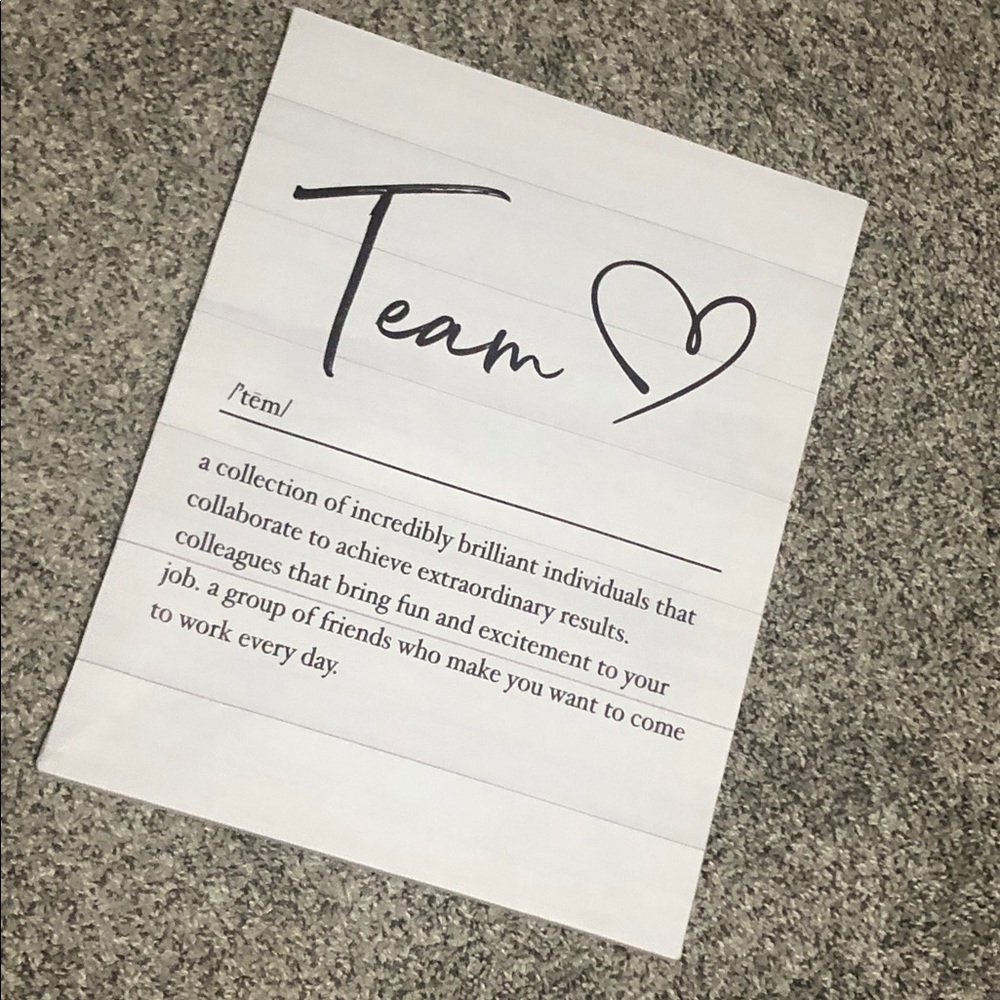 Team
/'tēm/
a collection of incredibly brilliant individuals that
collaborate to achieve extraordinary results.
colleagues that bring fun and excitement to your
job. a group of friends who make you want to come
to work every day.